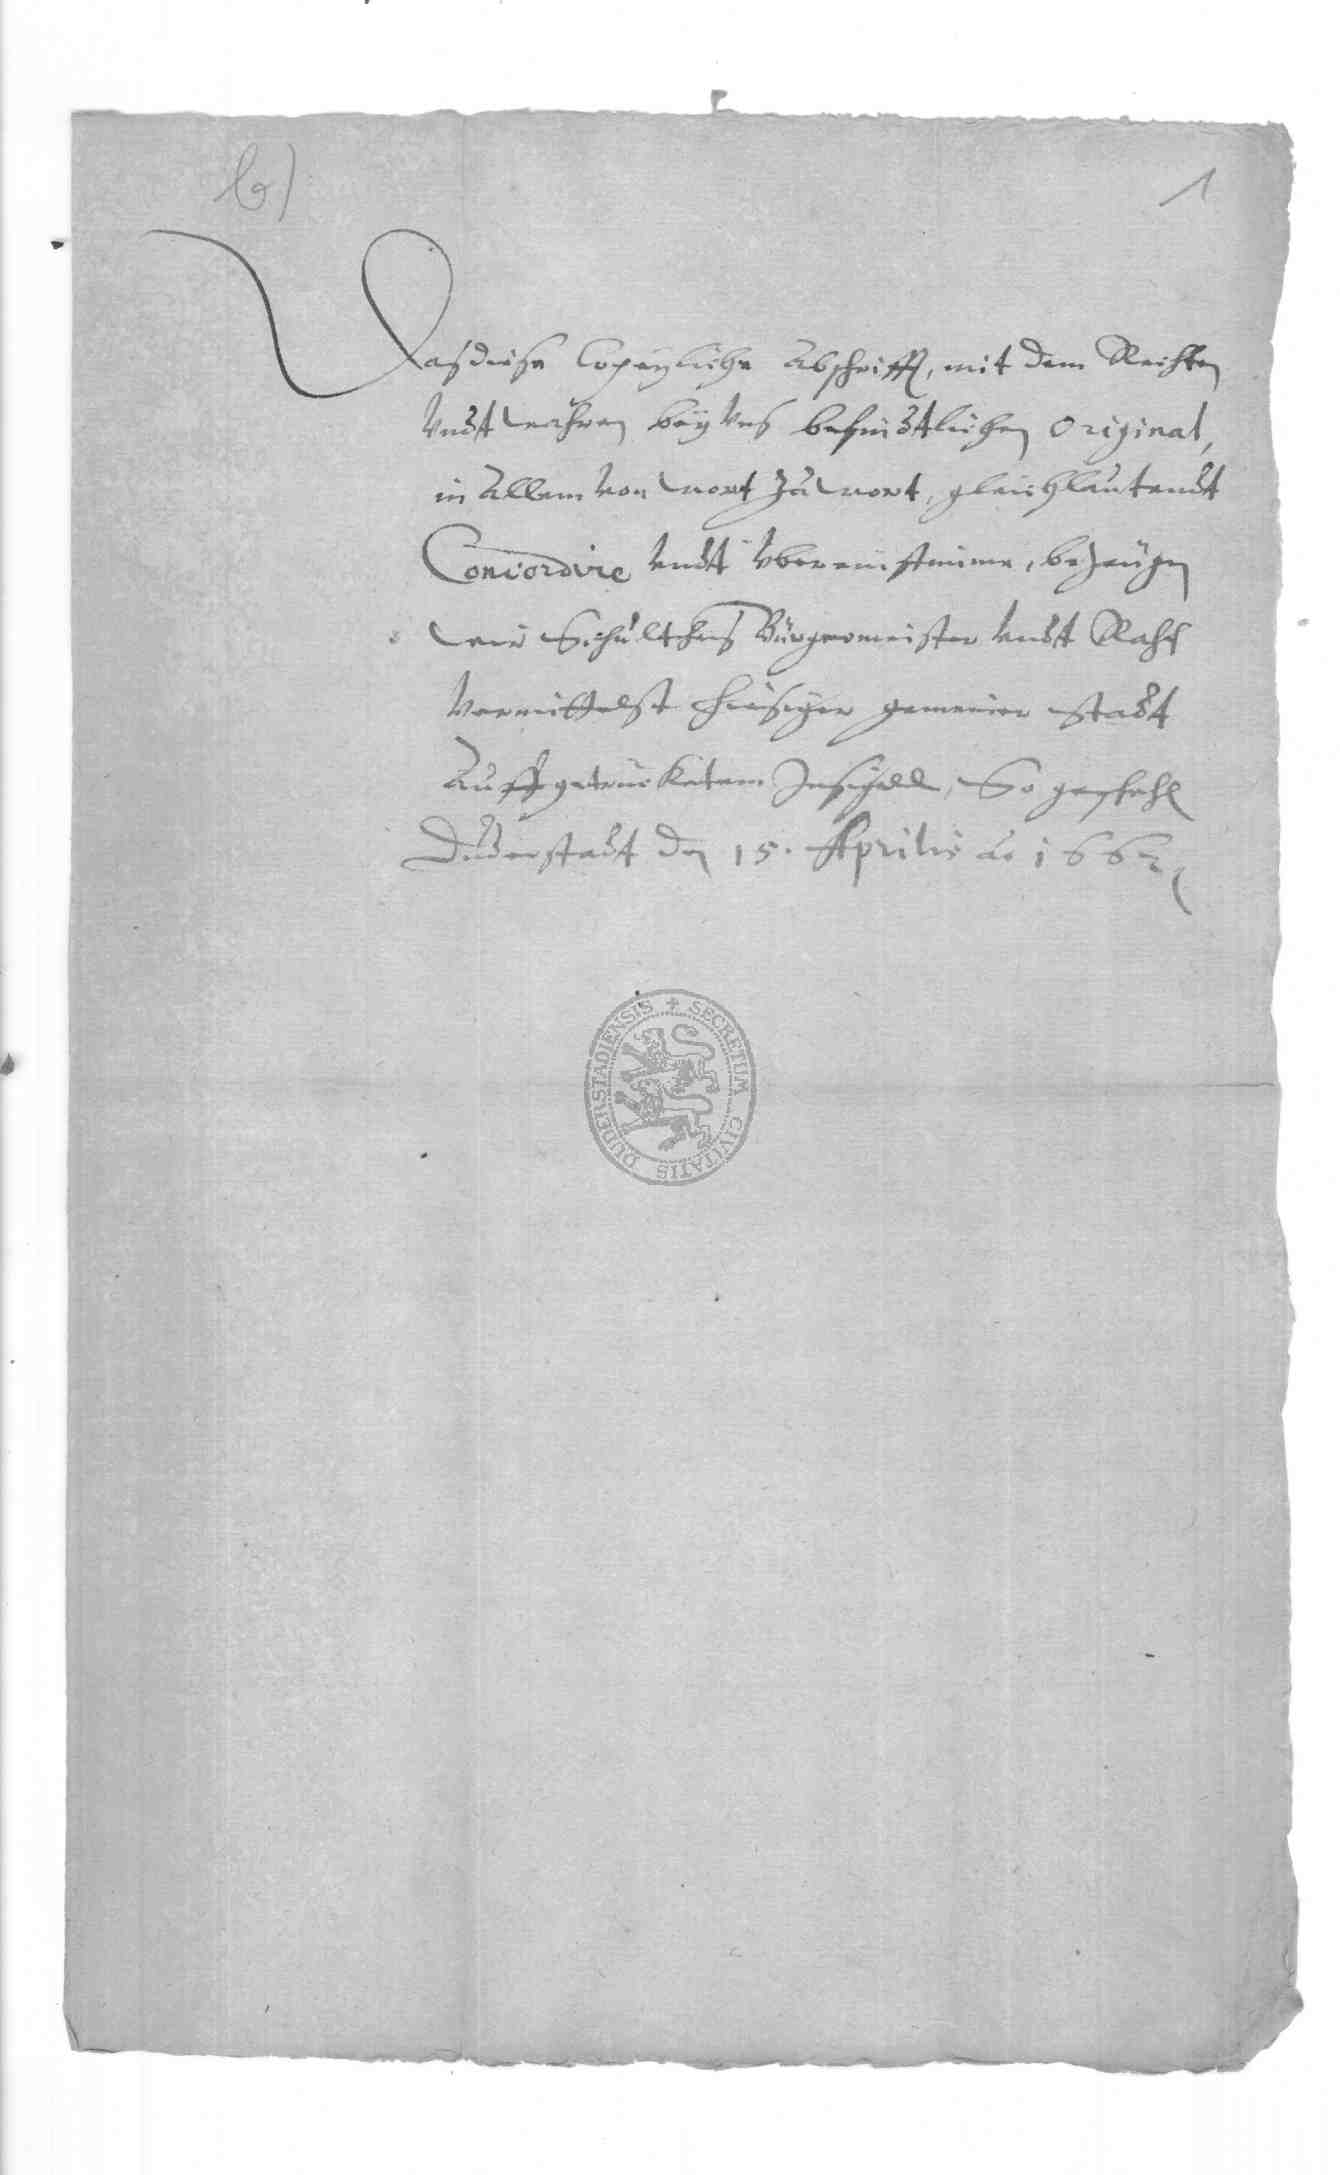 b)
1
Das diese Copeyliche Abschrifft, mit dem Rechten
Undt wahren bey Uns befindtlichen Original,
in Allem von wort zu wort, gleichlautendt
Concordire undt ubereinstimme, bezeugen
wir Schultheis Bürgermeister undt Rath
Vermittelst hiesiger gemeiner Stadt
Auffgetrucktem Insigell, So geschehen
Duderstadt den 15. Aprilis Ao 166
SECRETUM CIVITATIS DUDERSTADIENSIS